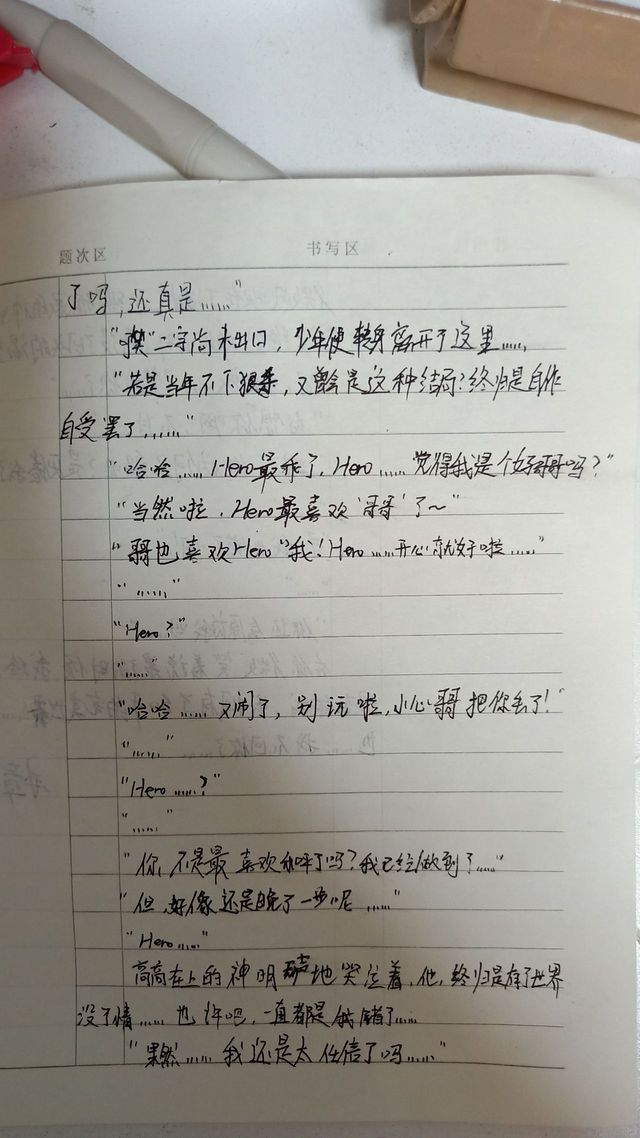 题次区 书写区
了吗，还真是……"
"噗"二字尚未出口，少年便转身离开了这里……
"若是当年不下狠手，又会是这种结局？终归是自作
自受罢了……"
"哈哈……Hero最乖了，Hero……觉得我是个好哥哥吗？"
"当然啦，Hero最喜欢'哥哥'了～"
"哥也喜欢Hero"我！Hero……开心就好啦……"
"……"
"Hero？"
"……"
"哈哈……又闹了，别玩啦，小心哥把你丢了！"
"……"
"Hero……？"
"……"
"你，不是最喜欢和平了吗？我已经做到了……"
"但，好像还是晚了一步呢……"
"Hero……"
高高在上的神明 地哭泣着，他，终归是有了世界
没了情……也许吧，一直都是我错了……
"果然……我还是太任信了吗……"